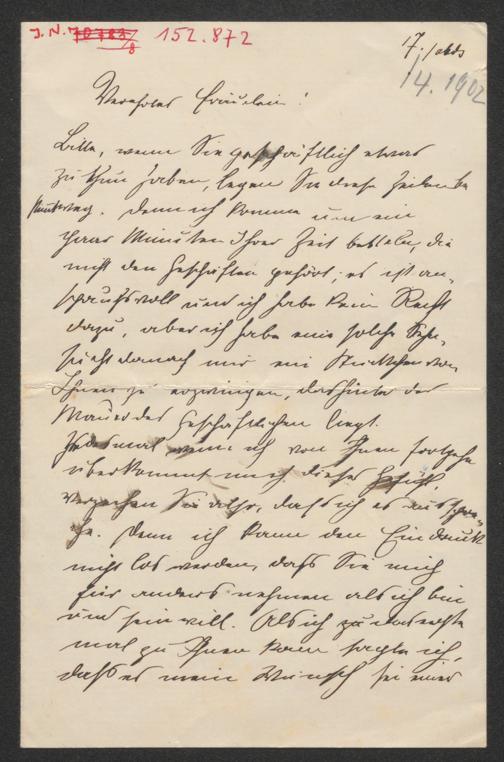 J.N. 152.872
17./
14. 1902
Verehrtes Fräulein!
Bitte, wenn Sie geschäftlich etwas
zu thun haben, legen Sie diese Zeilen be
weg. Denn ich komme um ein
paar Minuten Ihrer Zeit betteln, die
nicht den Geschäften gehört; es ist an-
spruchsvoll und ich habe kein Recht
dazu, aber ich habe eine solche Sehn-
sucht danach mir ein Stückchen von
Ihnen zu erzwingen, das hinter der
Mauer des Geschäftlichen liegt.
Jedesmal wenn ich von Ihnen fortgehe
überkommt mich dieses Gefühl.
Verzeihen Sie also, daß ich es ausspre-
che. Denn ich kann den Eindruck
nicht los werden, daß Sie mich
für anders nehmen als ich bin
und sein will. Als ich zu das erste
mal zu Ihnen kam sagte ich,
daß es mein Wunsch sei einer